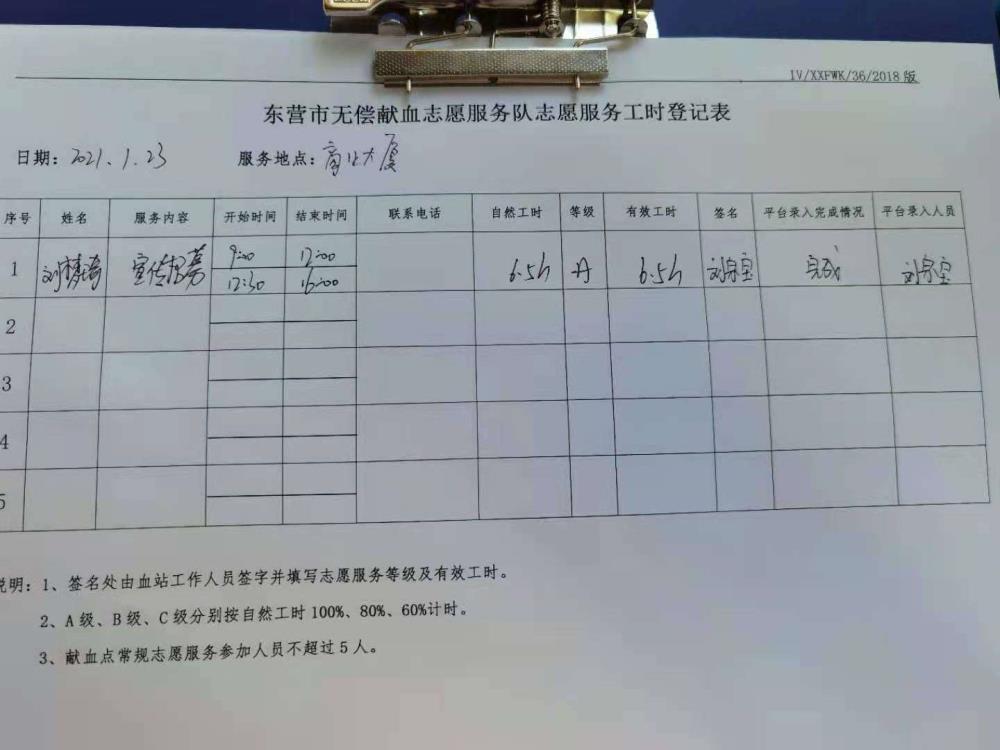 IV/XXFWK/36/2018版
东营市无偿献血志愿服务队志愿服务工时登记表
日期：2021.1.23 服务地点：商业大厦
序号 姓名 服务内容 开始时间 结束时间 联系电话 自然工时 等级 有效工时 签名 平台录入完成情况 平台录入人员
1 刘梦琦 宣传招募 9:00 12:00 6.5h A 6.5h 完成
12:30 16:00
2
3
4
5
说明：1、签名处由血站工作人员签字并填写志愿服务等级及有效工时。
2、A级、B级、C级分别按自然工时100%、80%、60%计时。
3、献血点常规志愿服务参加人员不超过5人。